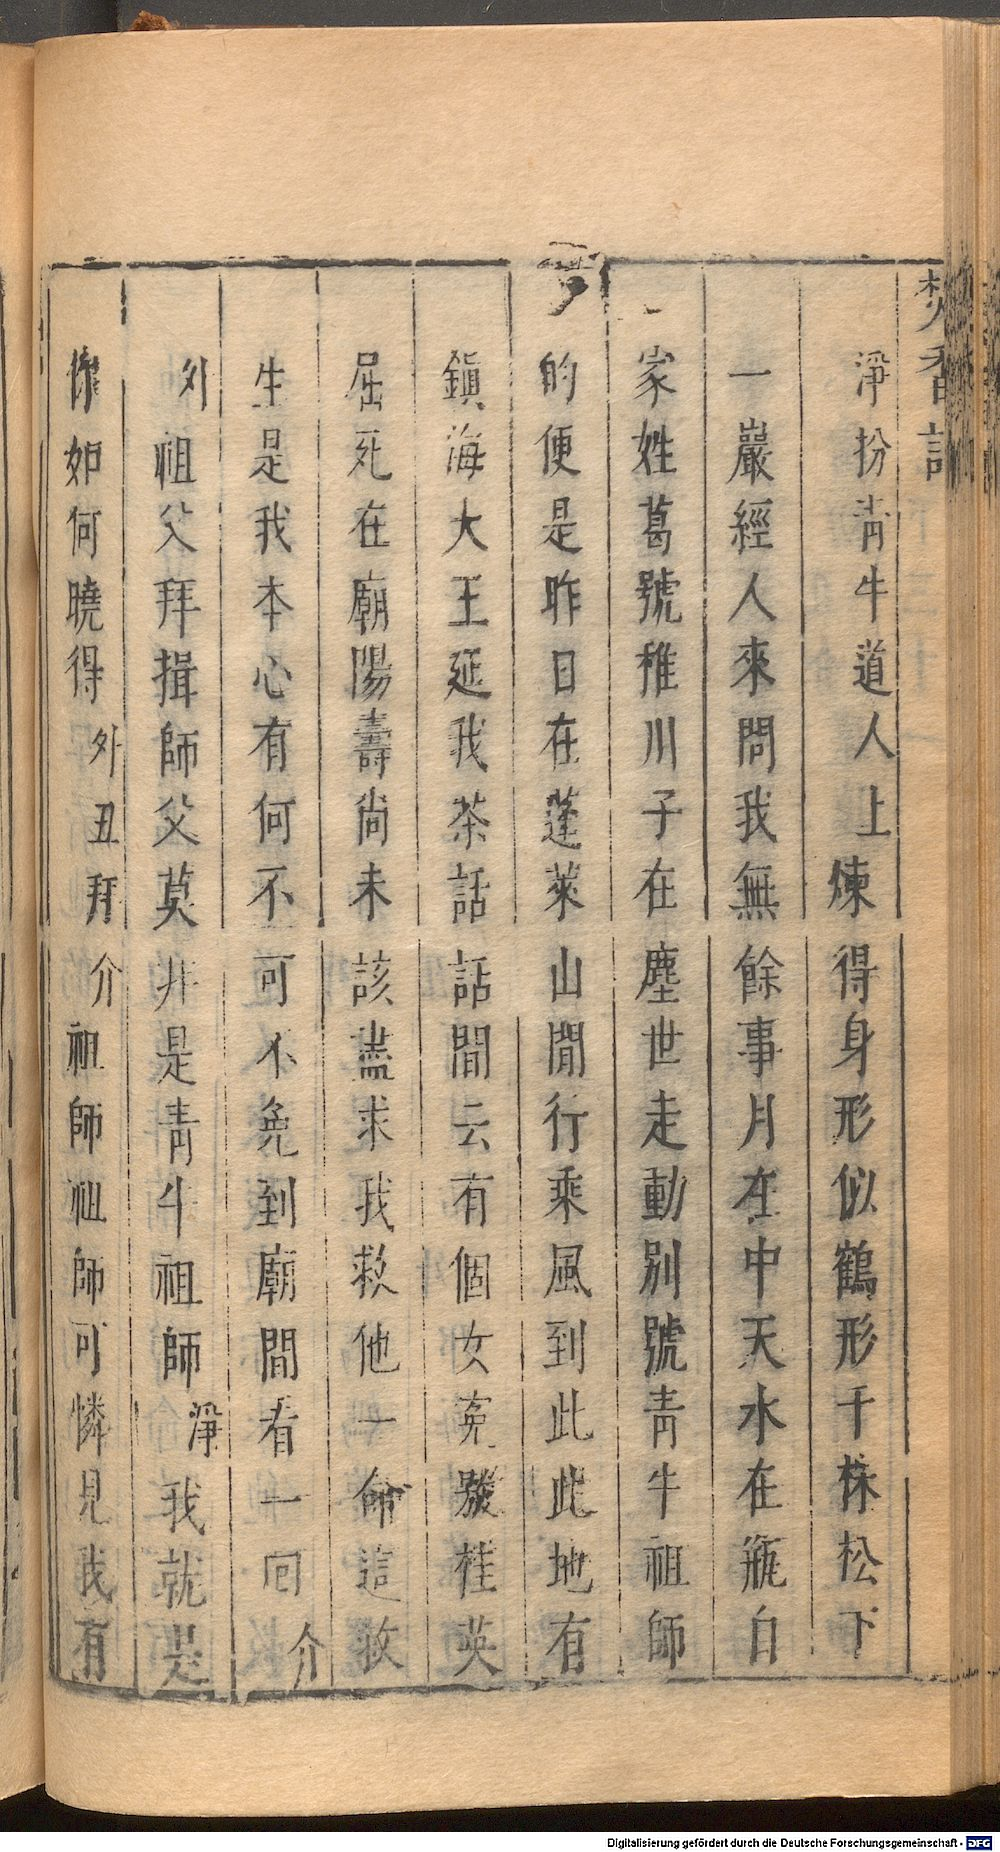 焚香記
淨扮青牛道人上煉得身形似鶴形千株松下
一嚴經人來問我無餘事月在中天水在瓶白
家姓葛號稚川子在塵世走動別號青牛祖師
的便是昨日在蓬萊山閒行乘風到此此地有
鎮海大王延我茶話話間云有個女寃㜑桂英
屈死在廟陽壽尚未該盡求我救他一命這救
生是我本心有何不可不免到廟間看一回介
外祖父拜揖師父莫非是青牛祖師淨我就是
你如何曉得外丑拜介祖師祖師可憐見我有
Digitalisierung gefördert durch die Deutsche Forschungsgemeinschaft - DFG